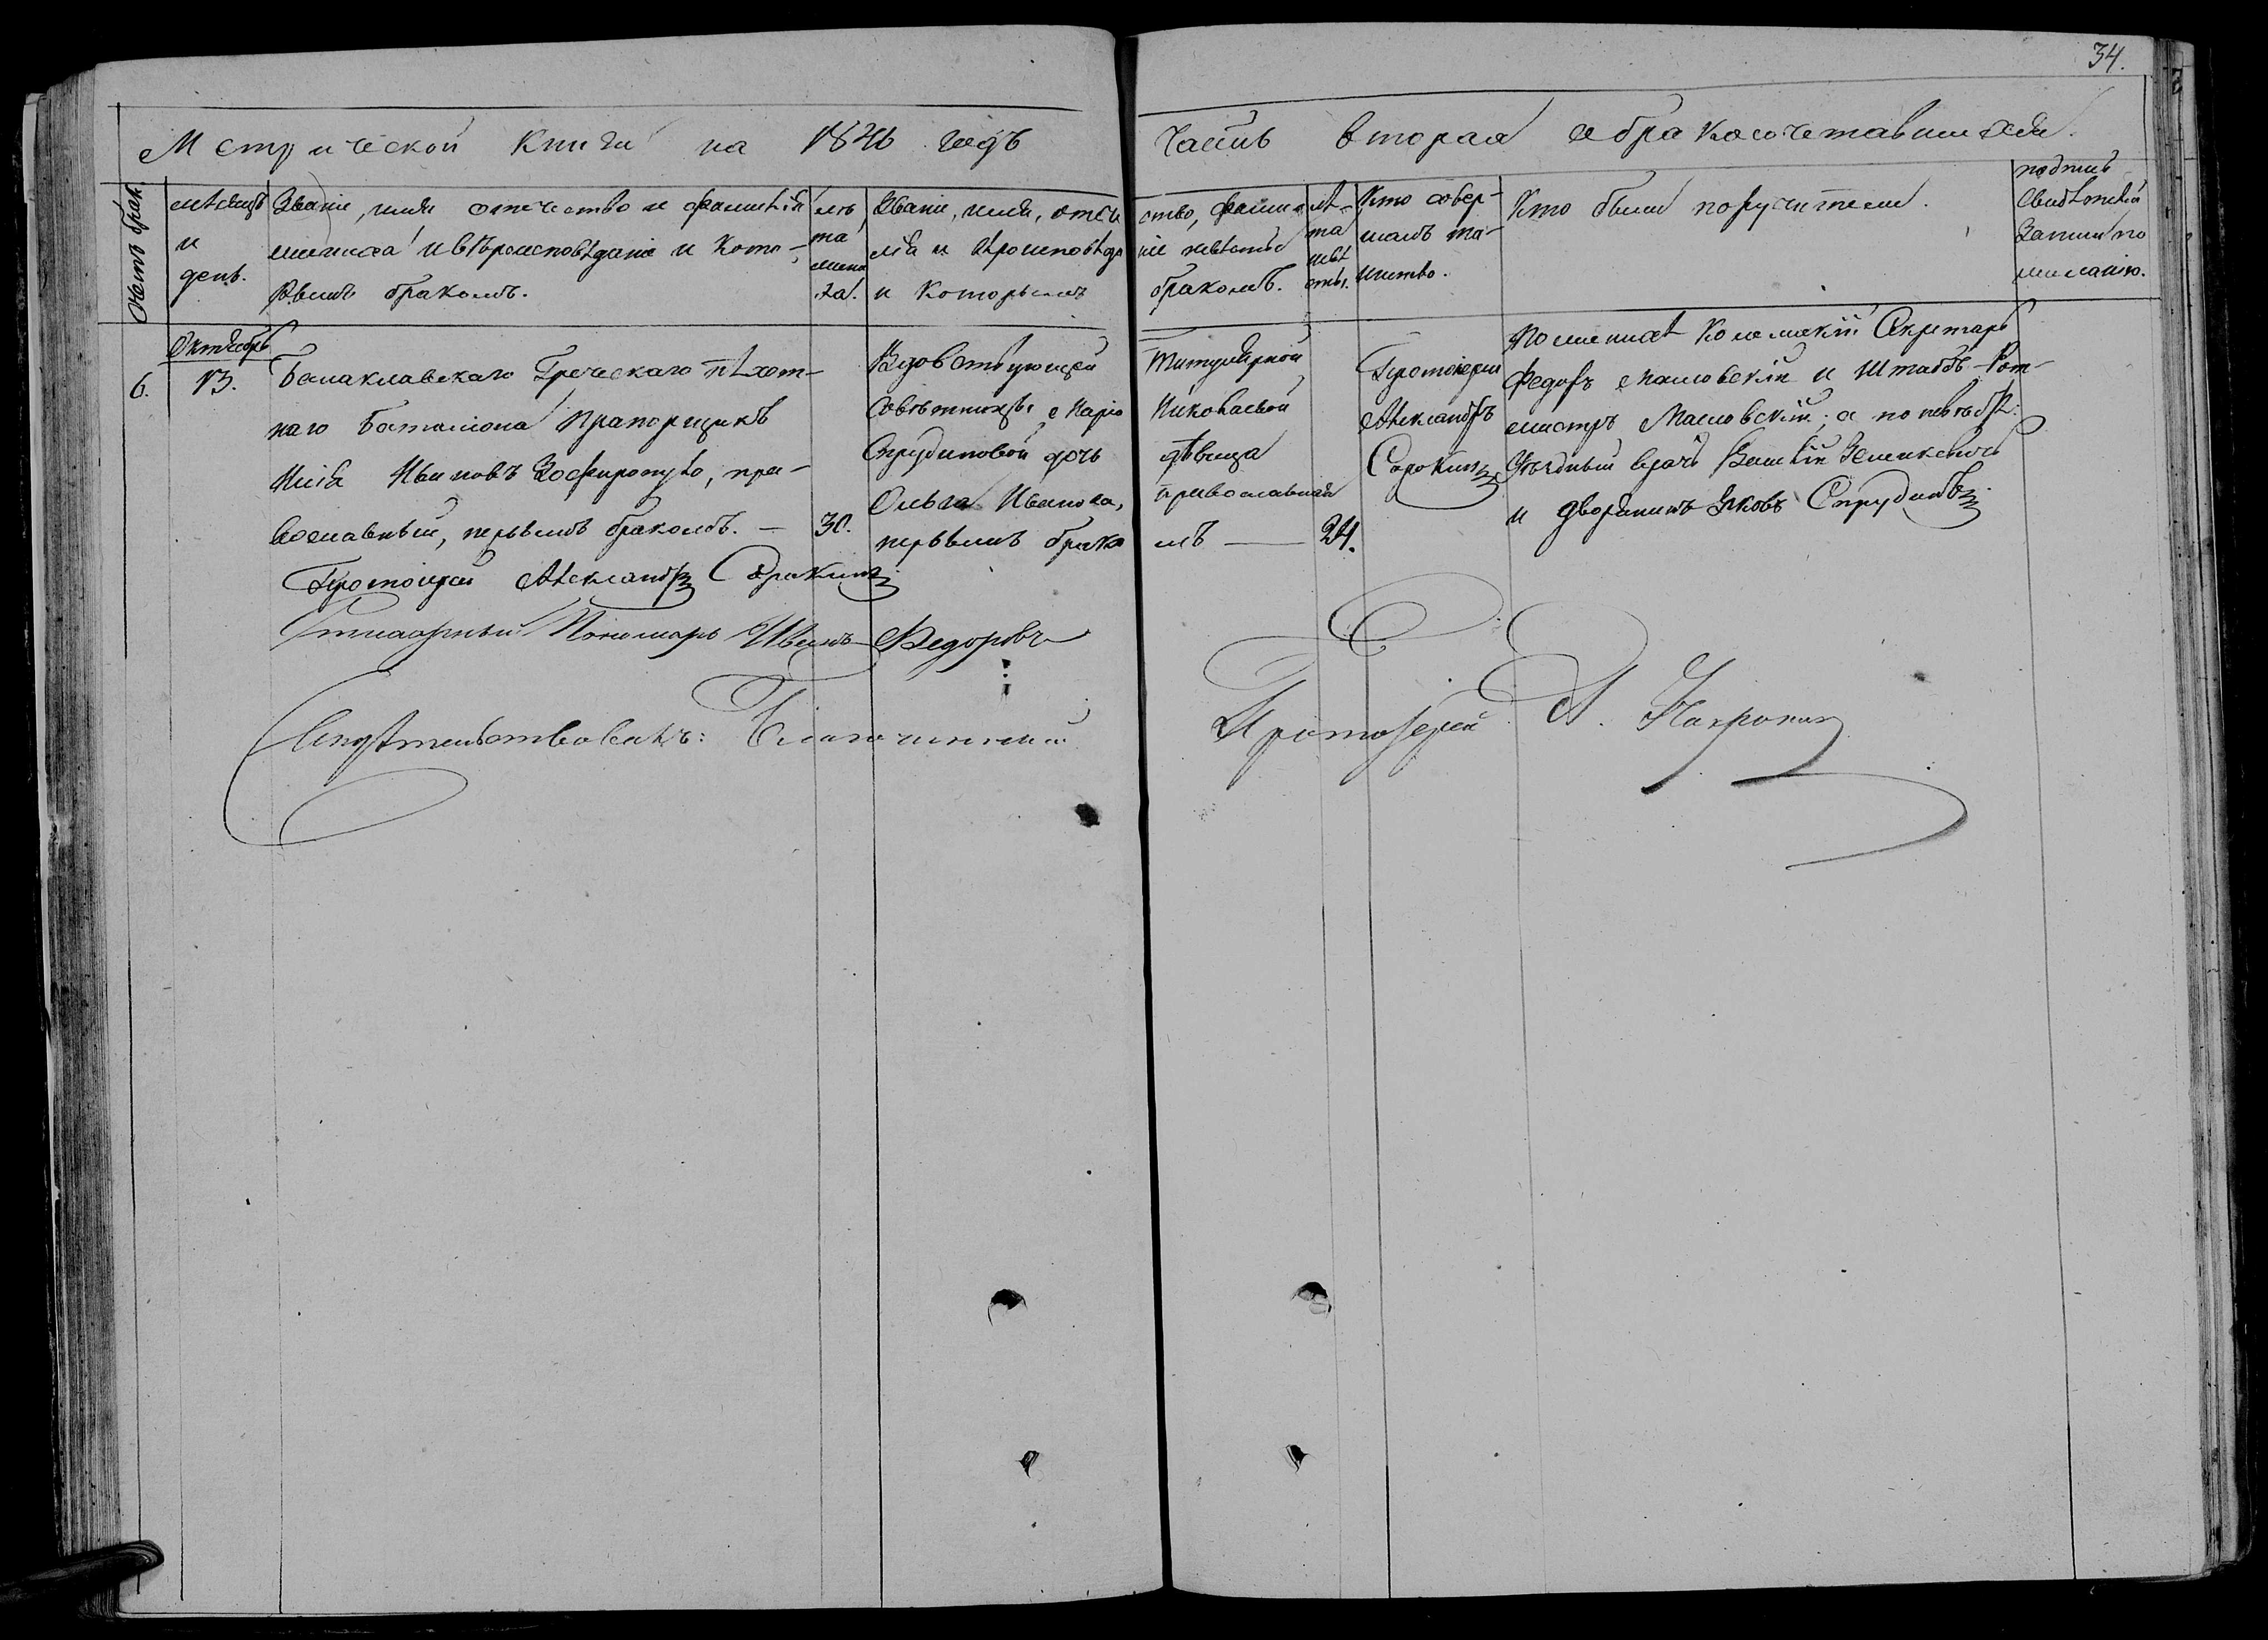 34.
Метрической Книги на 1846 годъ Часть вторая о бракосочетавшихся.
Счетъ брак.
мѣсяцъ
и
день.
Званіе, имя отчество и фамилія
жениха и вѣроисповѣданіе и кото-
рымъ бракомъ.
лѣ
та
жени
ха.
Званіе, имя, отче
лія и вѣроисповѣда
и которымъ
ство, фами-
ніе невѣсты
бракомъ.
лѣ-
та
невѣ
сты.
Кто совер-
шалъ та-
инство.
Кто были поручители.
подпись
свидѣтелей
записи по
желанію.
6.
Октябрь
13.
Балаклавскаго Греческаго пѣхот-
наго баталіона Прапорщикъ
Илія Ивановъ Зосфиропуло, пра-
вославный, первымъ бракомъ. — 30.
Вдовствующей
Совѣтницы Маріи
Спрудиновой дочь
Ольга Иванова,
первымъ брако
Титулярной
Николаевой
дѣвица
православная
мъ — 24.
Протоіерей
Александръ
Сорокинъ
По женихѣ Коллежскій Секретарь
Федоръ Масловскій и Штабъ-Рот-
мистръ Масловскій; а по невѣстѣ:
Уѣздный врачь
и дворянинъ Яковъ Спрудинъ
Протоіерей Александръ Сорокинъ
Пономарь Иванъ Федоровъ
Свидѣтельствовалъ: Благочинный Протоіерей А.